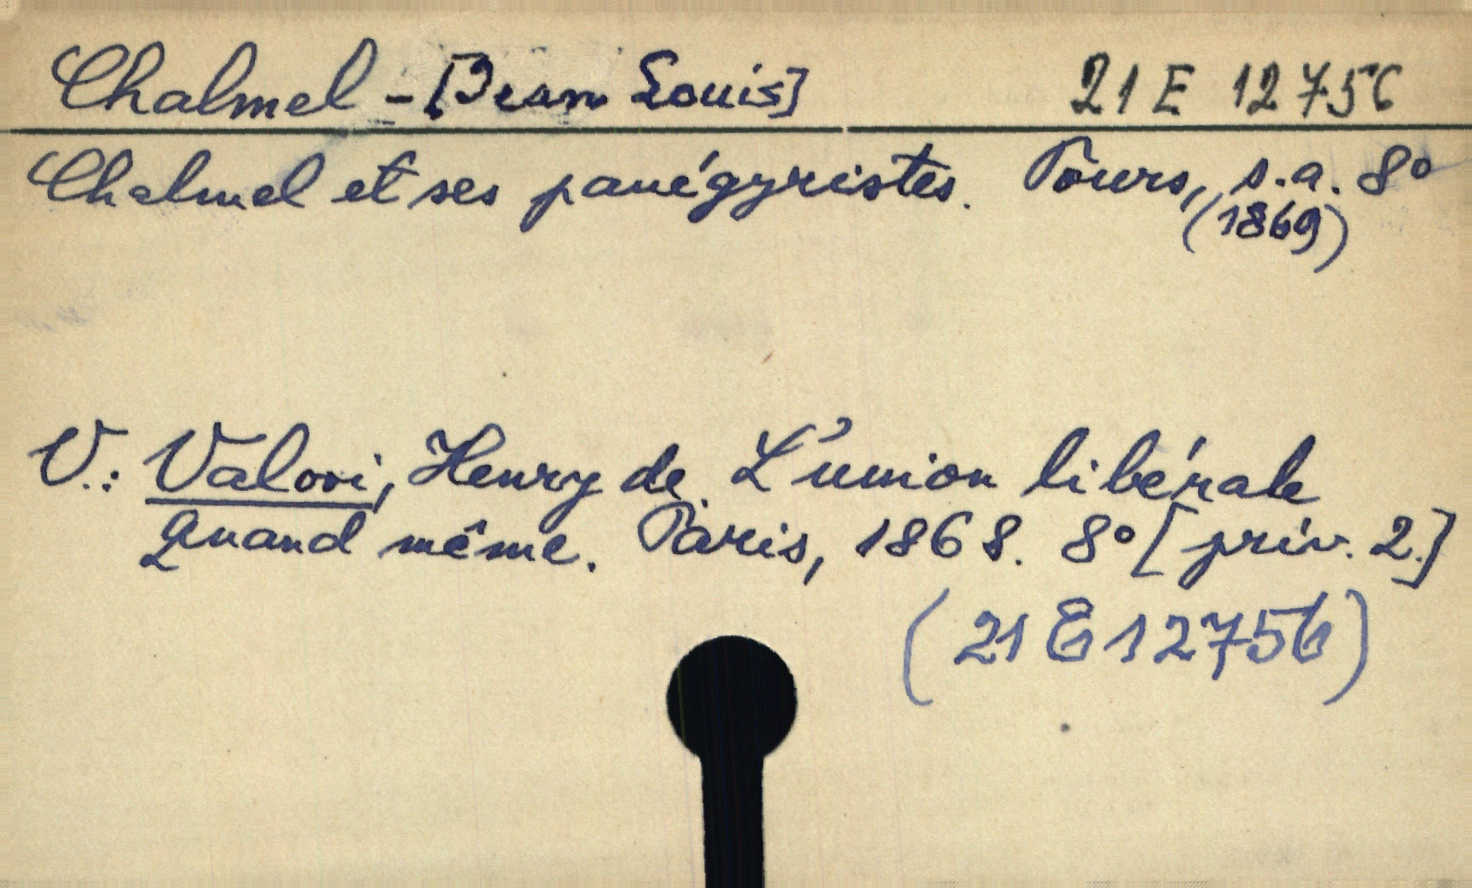 Chalmel - [Jean Louis] 21 E 12756
Chalmel et ses panégyristes. Tours, s.a. 8°
(1869)
V.: Valori, Henry de. L'union libérale
quand même. Paris, 1868. 8° [priv. 2.]
(21 E 12756)